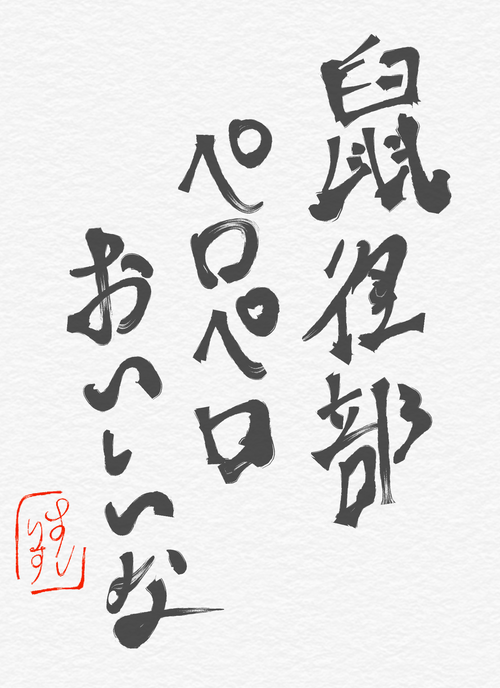 鼠径部
ペロペロ
おいしいな
すし
りす